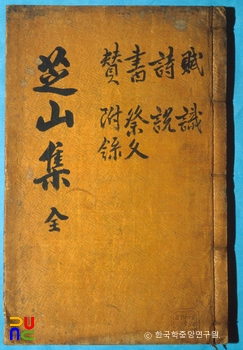 賦 識
詩 説
書 祭文
賛 附録
芝山集 全
© 한국학중앙연구원